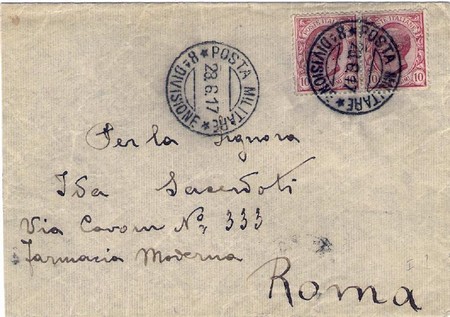 POSTE ITALIANE
10 10
POSTA MILITARE
8ª DIVISIONE
28.6.17
POSTA MILITARE
8ª DIVISIONE
28.6.17
Per la Signora
Ida Sacerdoti
Via Cavour No, 333
Farmacia Moderna
Roma